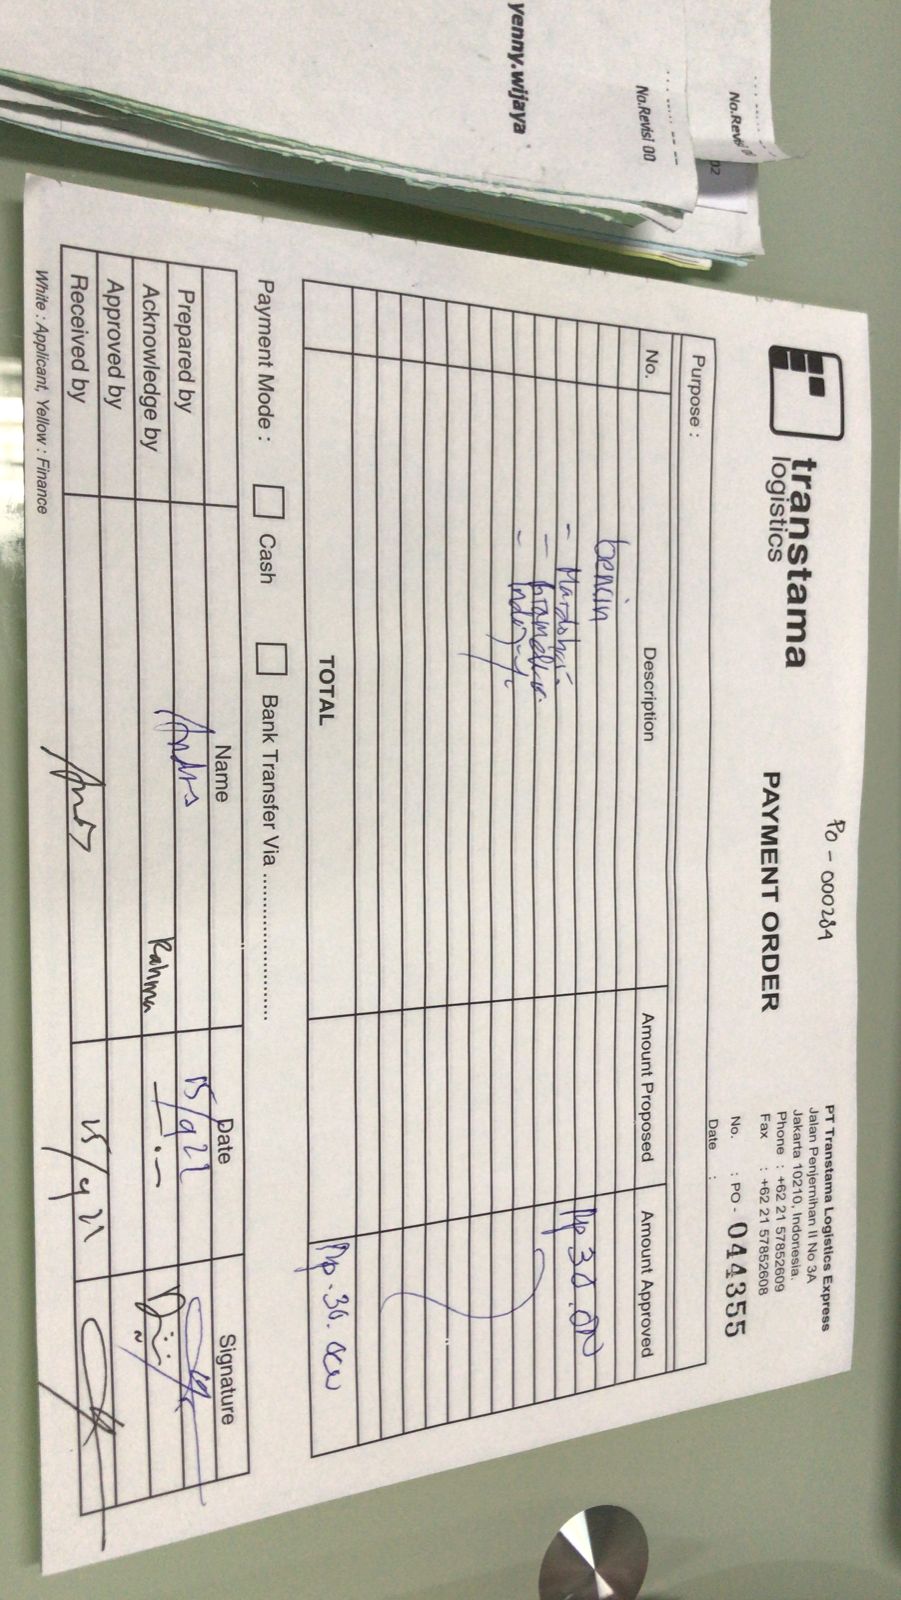 yenny.wijaya
No.Revisi 00
No.Revisi
02
PO - 000284
transtama
logistics
PAYMENT ORDER
PT Transtama Logistics Express
Jalan Penjernihan II No 3A
Jakarta 10210, Indonesia.
Phone : +62 21 57852609
Fax : +62 21 57852608
No. : PO - 044355
Date :
Purpose :
No. Description Amount Proposed Amount Approved
bencin
- Mardohar Rp 30.000
-
-
TOTAL Rp. 30.000
Payment Mode : Cash Bank Transfer Via ........................
Name Date Signature
Prepared by Andis 15/9 22
Acknowledge by Rahma
Approved by
Received by 15/9 22
White : Applicant, Yellow : Finance